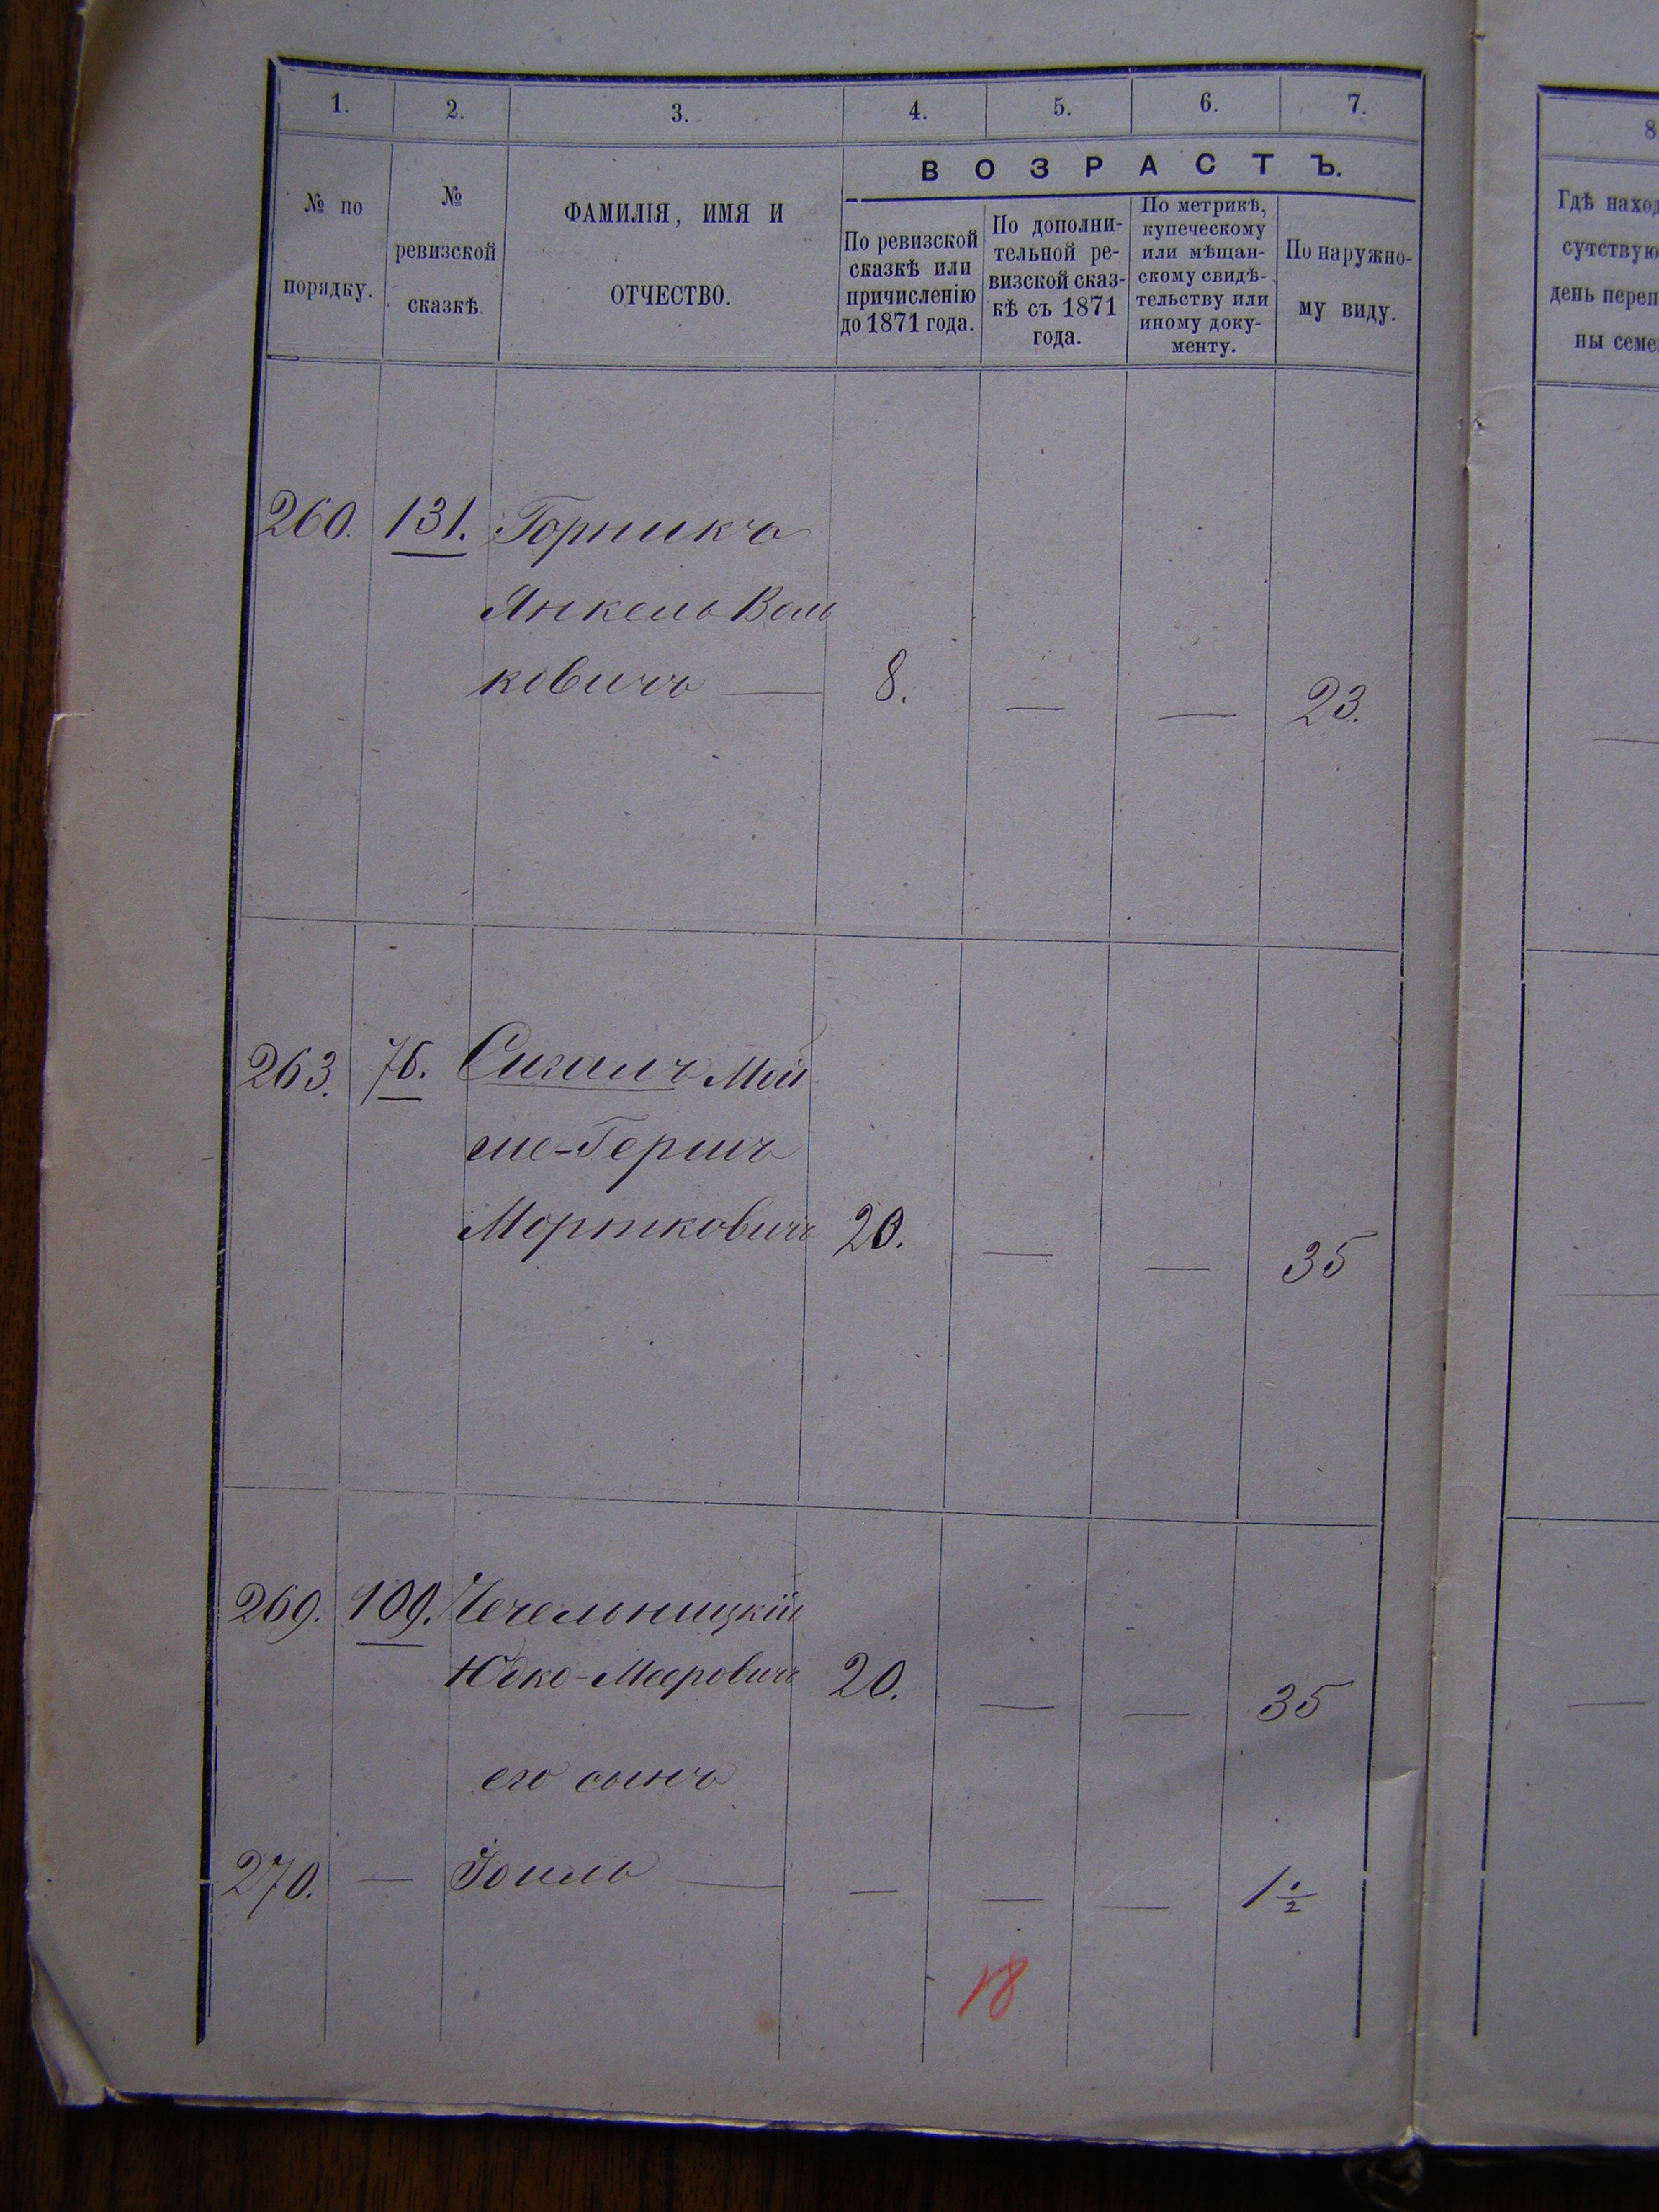 1. 2. 3. 4. 5. 6. 7.
№ по порядку.
№ ревизской сказкѣ.
ФАМИЛІЯ, ИМЯ И
ОТЧЕСТВО.
ВОЗРАСТЪ.
По ревизской
сказкѣ или
причисленію
до 1871 года.
По дополни-
тельной ре-
визской сказ-
кѣ съ 1871
года.
По метрикѣ,
купеческому
или мѣщан-
скому свидѣ-
тельству или
иному доку-
менту.
По наружно-
му виду.
8
Гдѣ наход
сутствую
день переп
ны семе
260. 131. Горникъ
Янкель Воль
ковичъ — 8. — — 23.
263. 76. Сигалъ Мой
ше-Гершъ
Мортковичъ 20. — — 35
269. 109. Чечельницкій
Юдко-Мееровичъ 20. — — 35
его сынъ
270. — Іоиль — — — — 1½
18